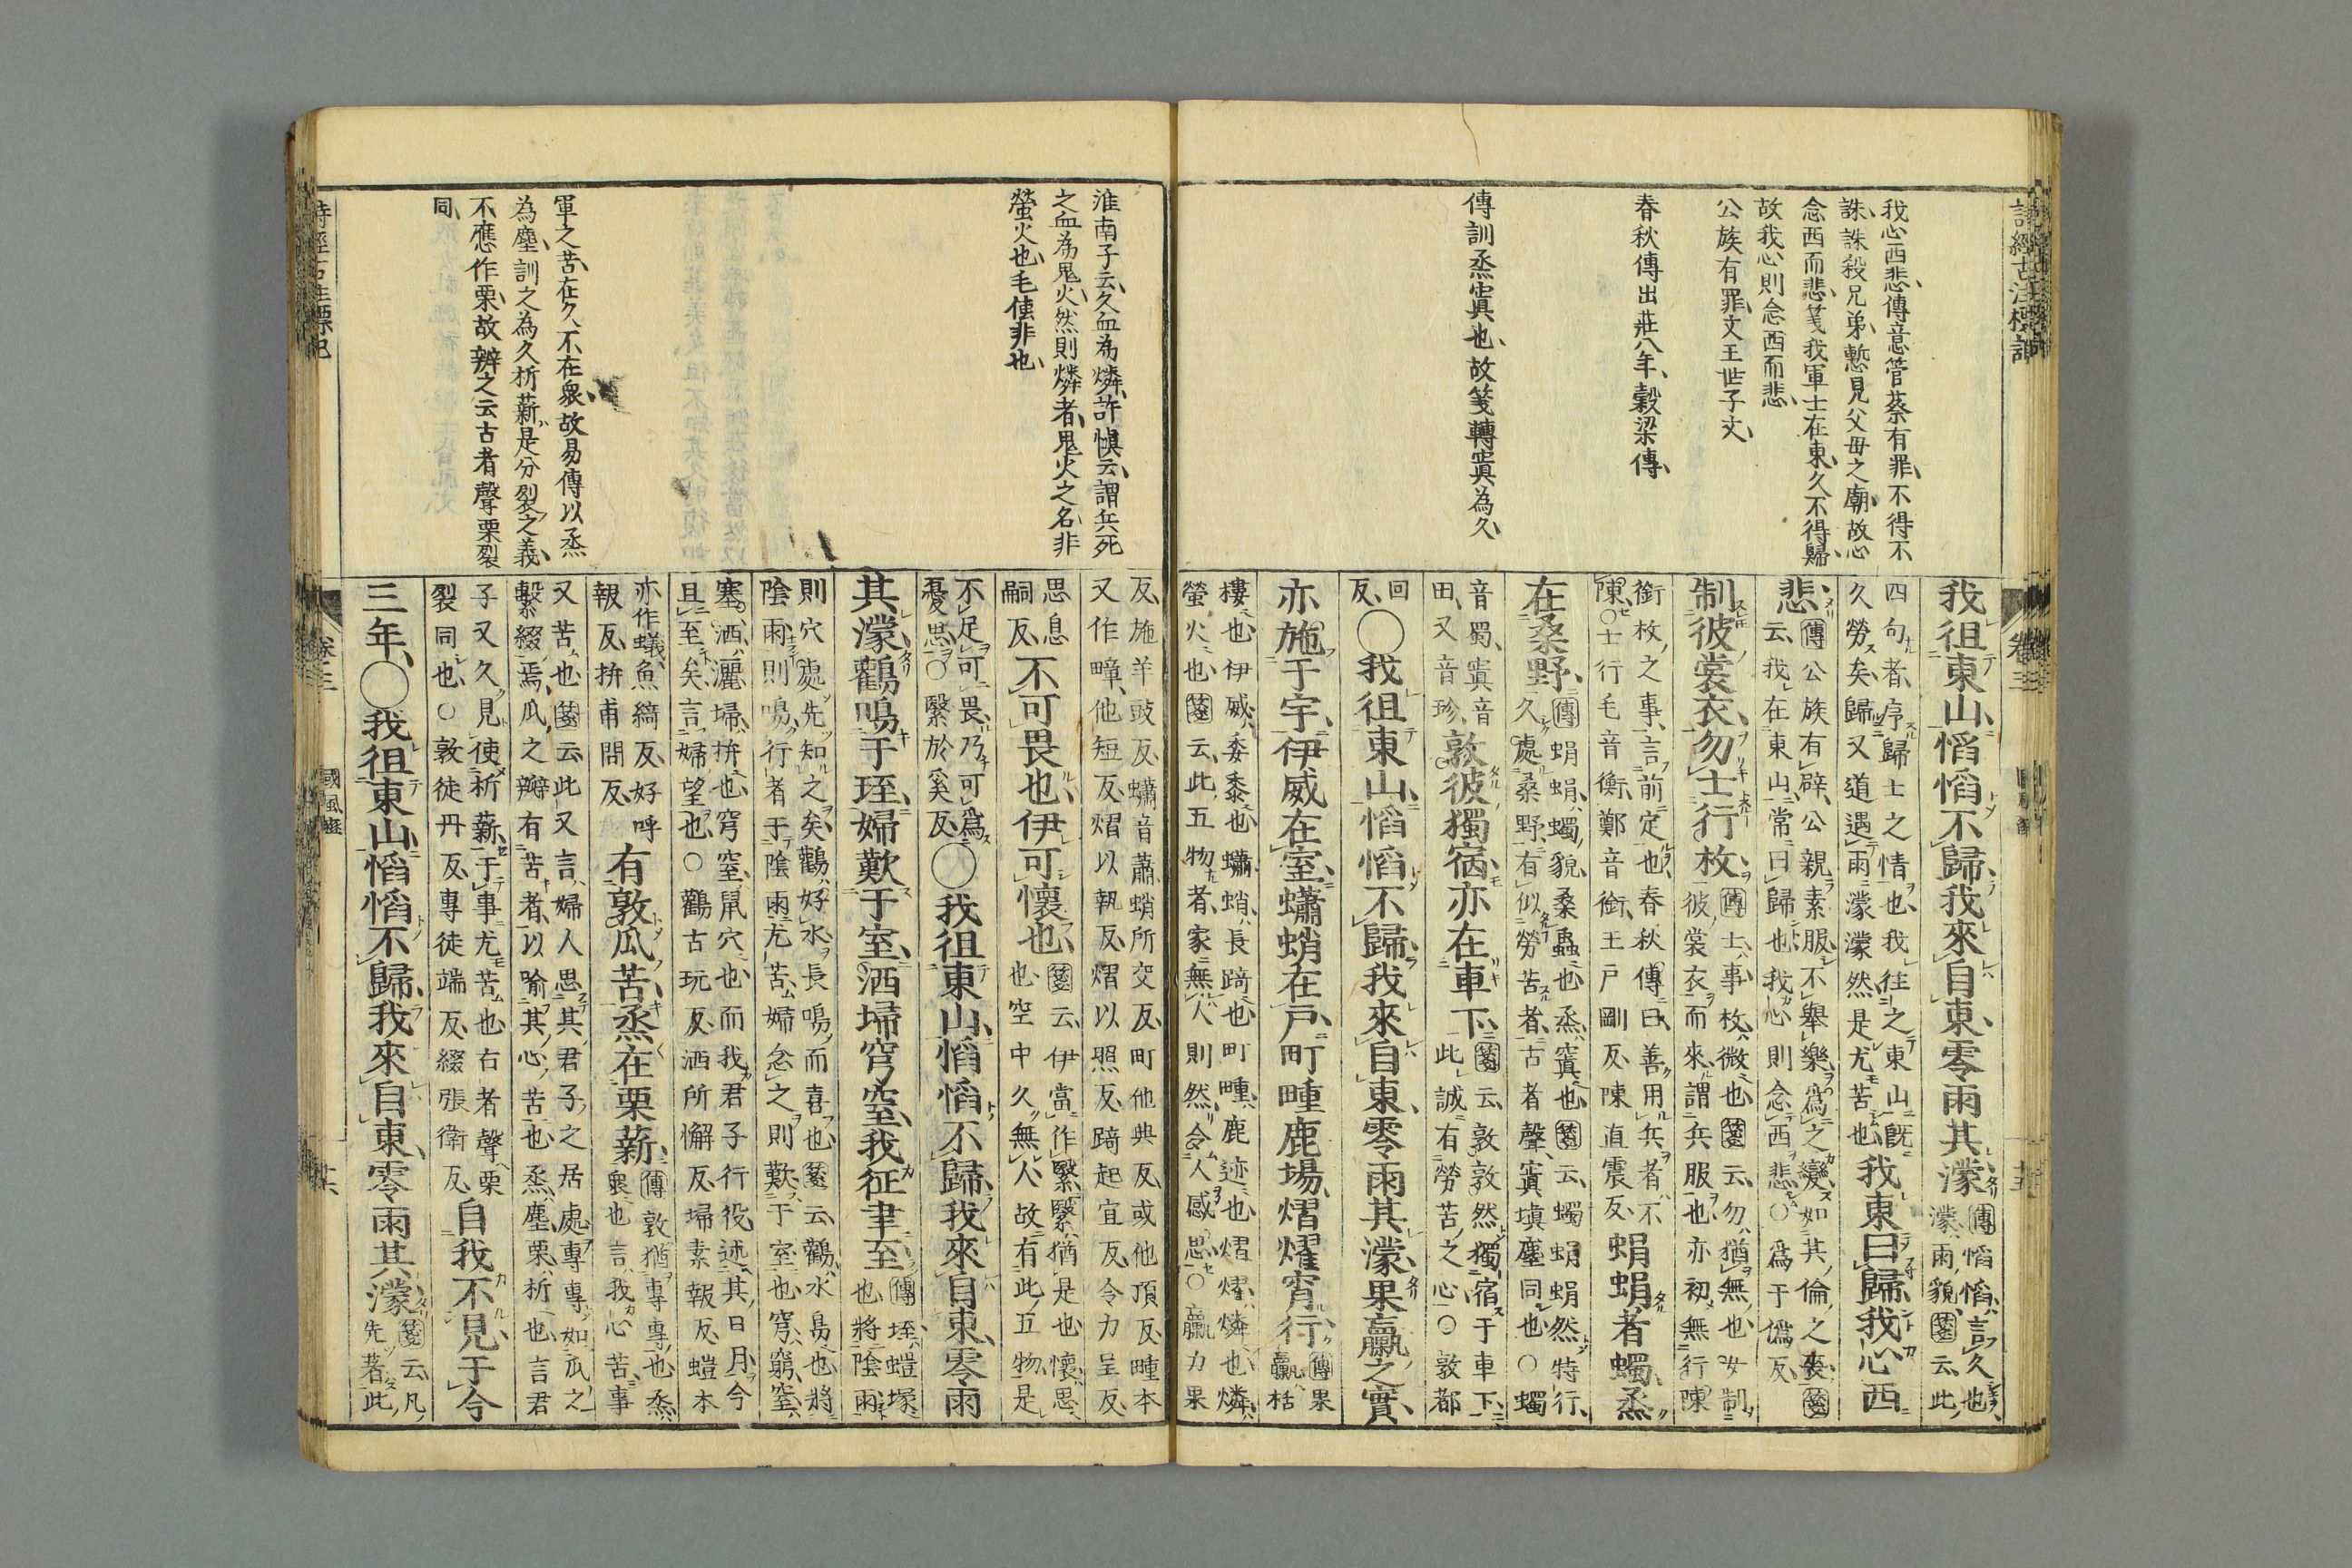 我心西悲、傳意管蔡有罪、不得不
誅、誅殺兄弟、慙見父母之廟、故心
念西而悲、箋我軍士在東、久不得歸、
故我心則念西而悲、
公族有罪、文王世子文、
春秋傳出莊八年、穀梁傳、
傳訓烝窴也、故箋轉窴為久、
我徂東山、慆慆不歸、我來自東、零雨其濛、傳慆慆、言久也、濛、雨貌、箋云、此
四句者、序歸士之情也、我往之東山、旣久勞矣、歸又道遇雨濛濛然、是尤苦也、我東曰歸、我心西
悲、傳公族有辟、公親素服、不舉樂、爲之變、如其倫之喪、箋云、我在東山、常曰歸也、我心則念西悲、○爲于僞反、
制彼裳衣、勿士行枚、傳士、事、枚、微也、箋云、勿、猶無也、女制彼裳衣而來、謂兵服也、亦初無行陳
銜枚之事、言前定也、春秋傳曰、善用兵者不陳、○士行毛音衡、鄭音銜、王戸剛反、陳直震反、蜎蜎者蠋、烝
在桑野、傳蜎蜎、蠋貌、桑蟲也、烝、窴也、箋云、蠋蜎蜎然特行、久處桑野、有似勞苦者、古者聲窴塡塵同也、○蠋
音蜀、窴音田、又音珍、敦彼獨宿、亦在車下、箋云、敦敦然獨宿于車下、此誠有勞苦之心、○敦都
回反、○我徂東山、慆慆不歸、我來自東、零雨其濛、果臝之實、
亦施于宇、伊威在室、蠨蛸在戸、町畽鹿場、熠燿宵行、傳果臝、栝
樓也、伊威、委黍也、蠨蛸、長踦也、町畽、鹿迹也、熠燿、燐也、燐、螢火也、箋云、此五物者、家無人則然、令人感思、○臝力果
淮南子云、久血為燐、許愼云、謂兵死
之血為鬼火、然則燐者、鬼火之名、非
螢火也、毛傳非也、
軍之苦在久、不在衆、故易傳以烝
為塵、訓之為久、析薪是分裂之義、
不應作栗、故辨之云、古者聲栗裂
同、
反、施羊豉反、蠨音蕭、蛸所交反、町他典反、或他頂反、畽本又作疃、他短反、熠以執反、燿以照反、踦起宜反、令力呈反、
思息嗣反、不可畏也、伊可懷也、箋云、伊當作繄、繄猶是也、懷、思也、空中久無人、故有此五物、是
不足可畏、乃可爲憂思、○繄於奚反、○我徂東山、慆慆不歸、我來自東、零雨
其濛、鸛鳴于垤、婦歎于室、洒埽穹窒、我征聿至、傳垤、螘塚也、將陰雨
則穴處先知之矣、鸛好水、長鳴而喜也、箋云、鸛、水鳥也、將陰雨則鳴、行者于陰雨尤苦、婦念之則歎于室也、穹、窮、窒、
塞、洒、灑、埽、拚也、穹窒、鼠穴也、而我君子行役、述其日月、今且至矣、言婦望也、○鸛古玩反、洒所懈反、埽素報反、螘本
亦作蟻、魚綺反、好呼報反、拚甫問反、有敦瓜苦、烝在栗薪、傳敦猶專專也、烝、衆也、言我心苦、事
又苦也、箋云、此又言婦人思其君子之居處、專專如瓜之繫綴焉、瓜之瓣有苦者、以喩其心苦也、烝、塵、栗、析也、言君
子又久見使析薪、于事尤苦也、古者聲栗裂同也、○敦徒丹反、專徒端反、綴張衛反、自我不見、于今
三年、○我徂東山、慆慆不歸、我來自東、零雨其濛、箋云、凡先著此、
卷三
國風豳
十六